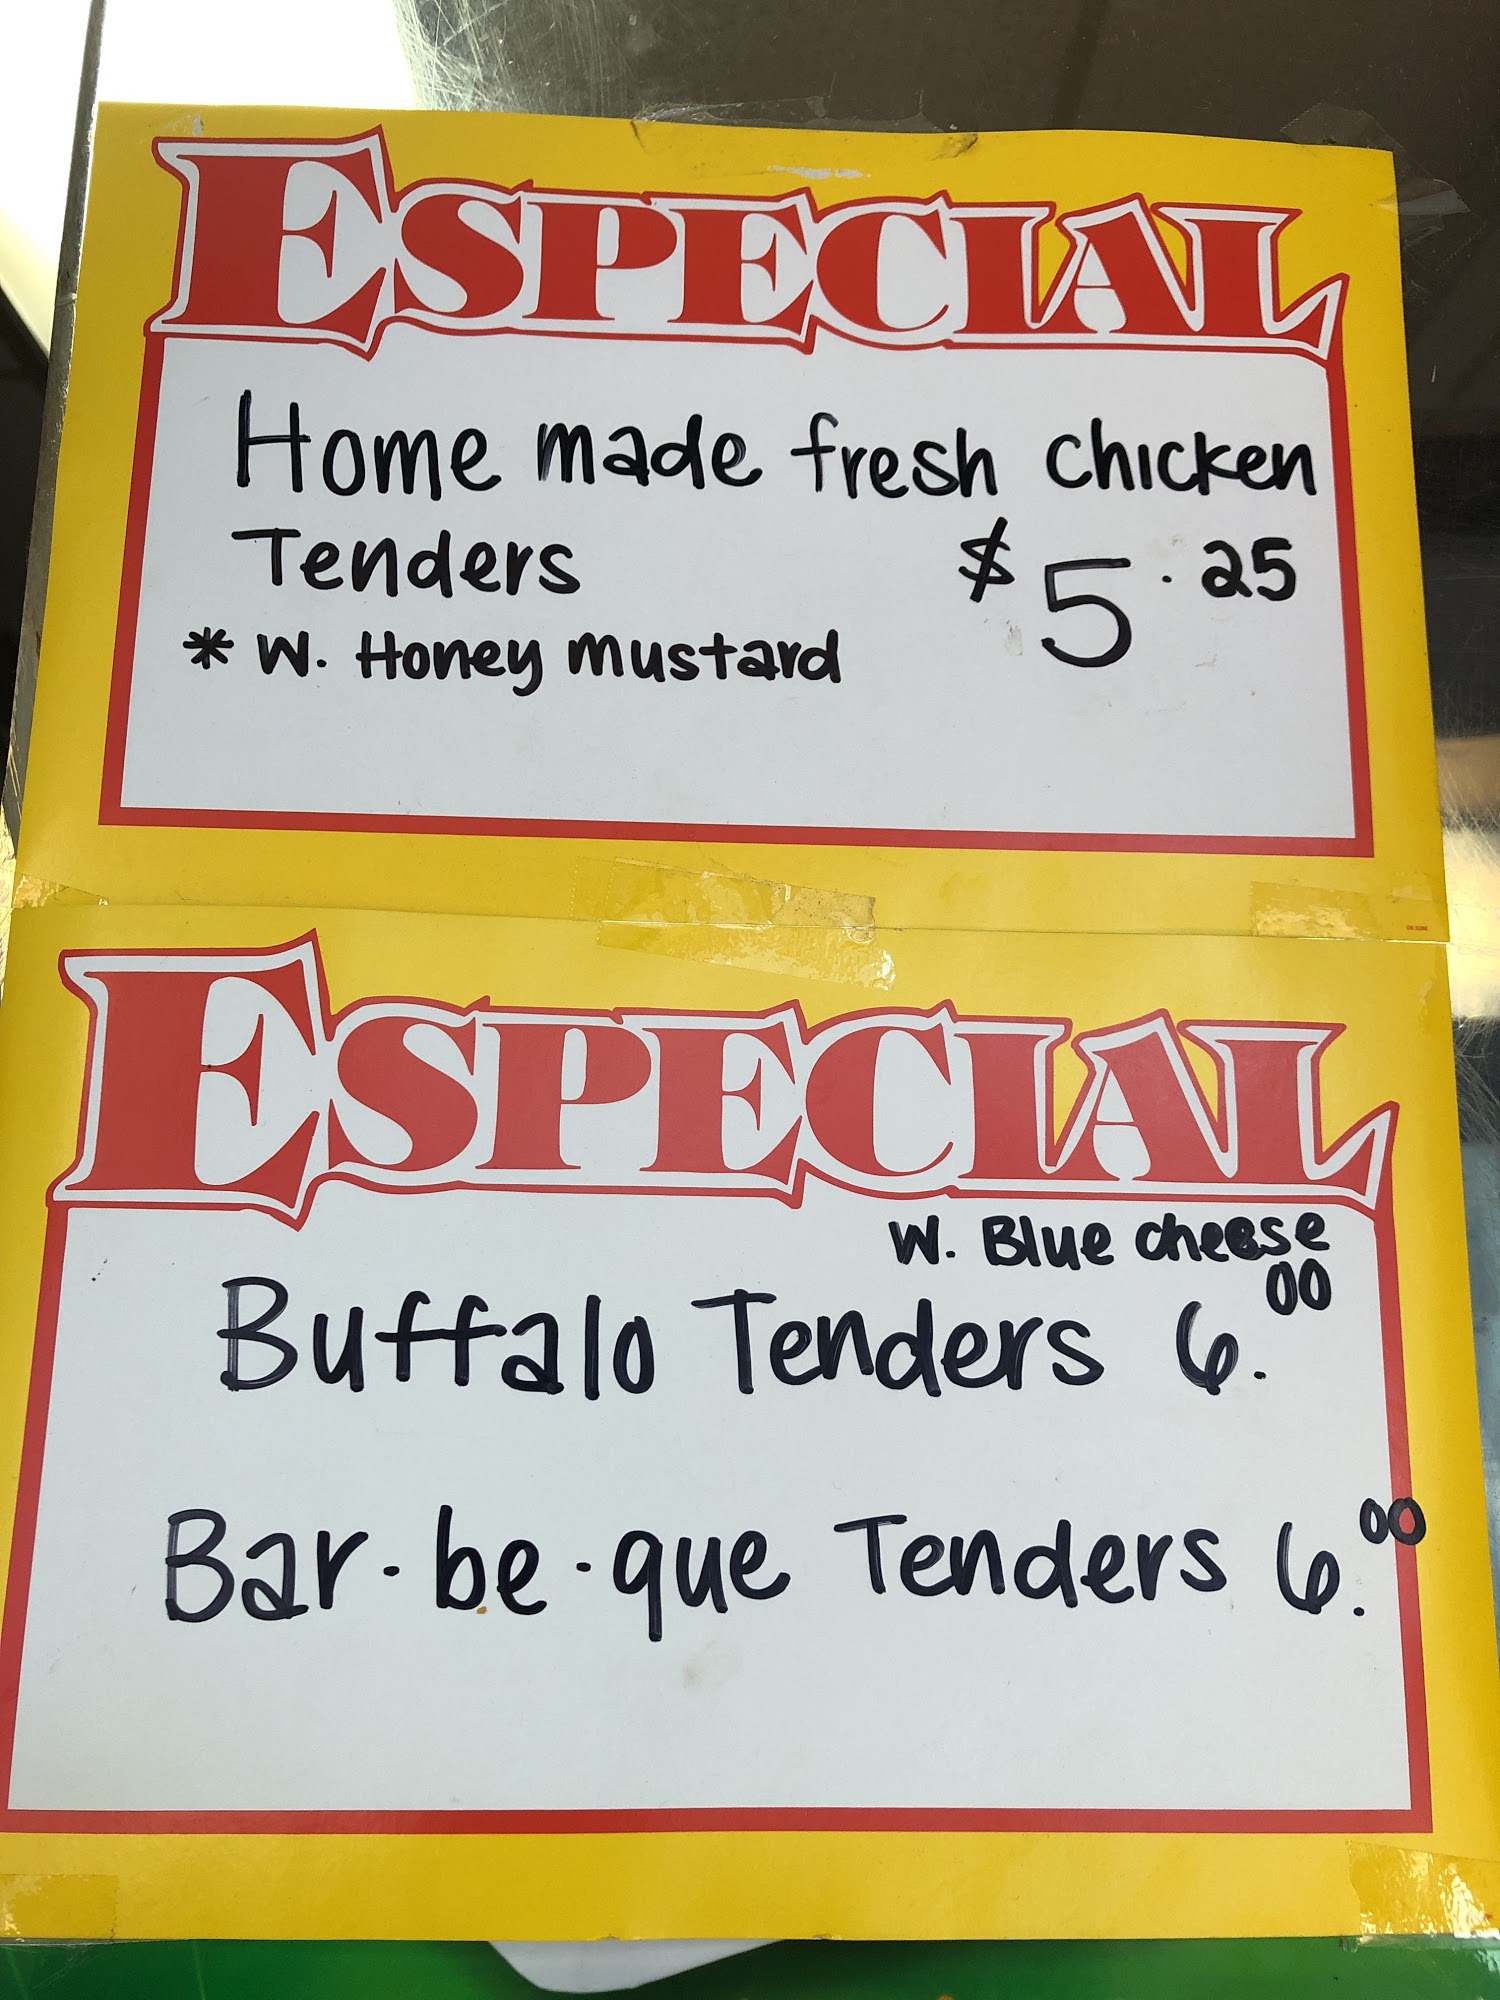 ESPECIAL
Home made fresh chicken
Tenders $5.25
* W. Honey mustard
ESPECIAL
W. Blue cheese
Buffalo Tenders 6.00
Bar-be-que Tenders 6.00